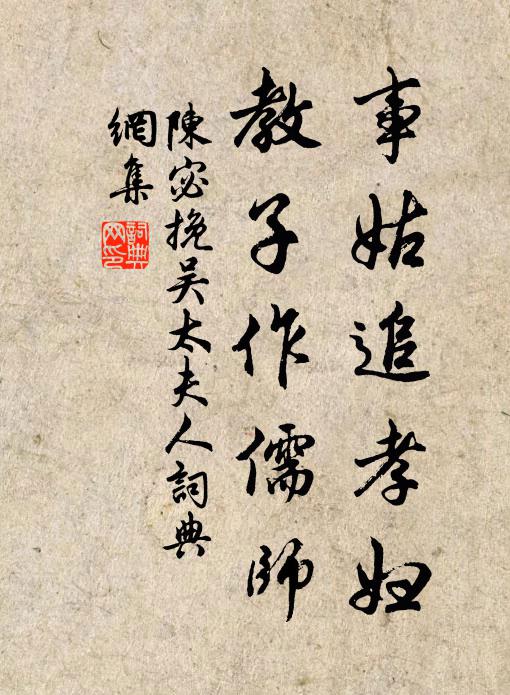 事姑追孝妇
教子作儒師
陳宓挽吴太夫人詞典
網集
詞典网印